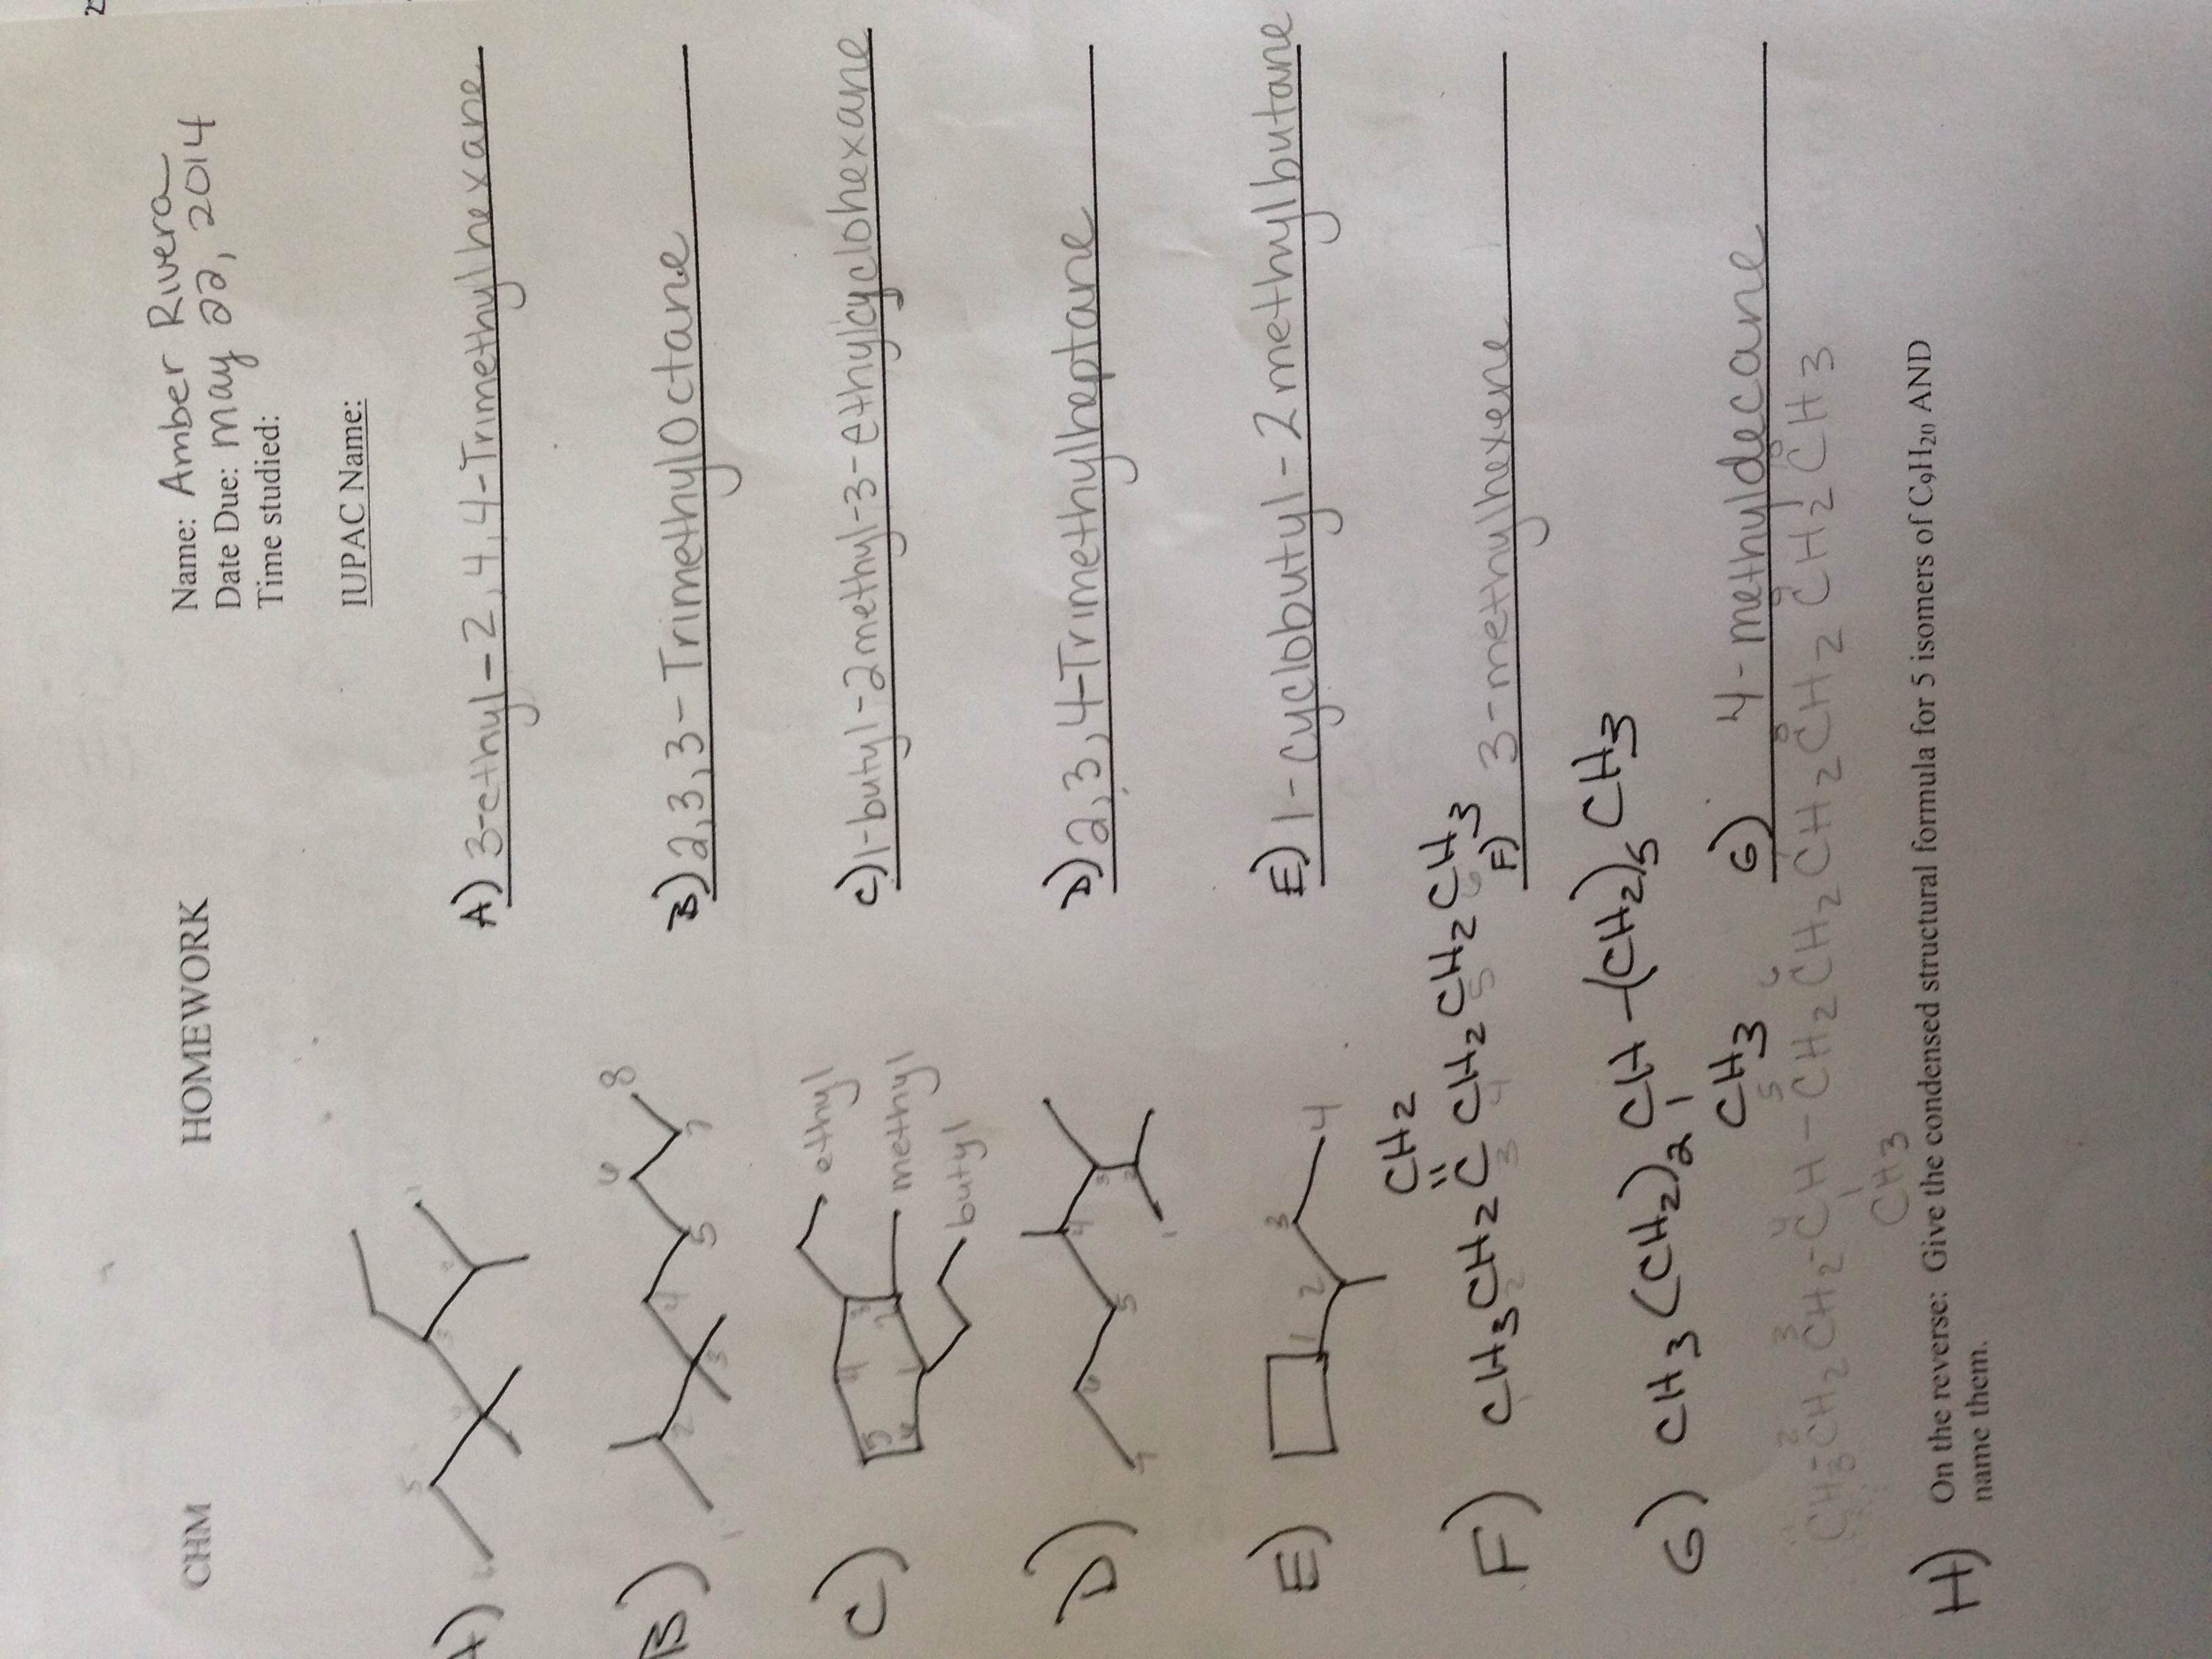 CHM HOMEWORK Name: Amber Rivera
Date Due: may 22, 2014
Time studied:
IUPAC Name:
A) 5 4 3 2 1 A) 3-ethyl-2,4,4-Trimethylhexane
B) 1 2 3 4 5 6 7 8 B) 2,3,3-TrimethylOctane
C) 5 6 4 3 2 1 ethyl methyl butyl C) 1-butyl-2methyl-3-ethylcyclohexane
D) 7 6 5 4 3 2 1 D) 2,3,4-Trimethylheptane
E) 1 2 3 4 E) 1-cyclobutyl-2methylbutane
CH2
=
F) CH3CH2CCH2CH2CH3 F) 3-methylhexene
2 3 4 5 6
G) CH3(CH2)2CH-(CH2)5CH3
CH3 G) 4-methyldecane
2 3 4 5 6 7 8 9 10
CH3-CH2CH2-CH-CH2CH2CH2CH2CH2CH3
CH3
H) On the reverse: Give the condensed structural formula for 5 isomers of C9H20 AND
name them.